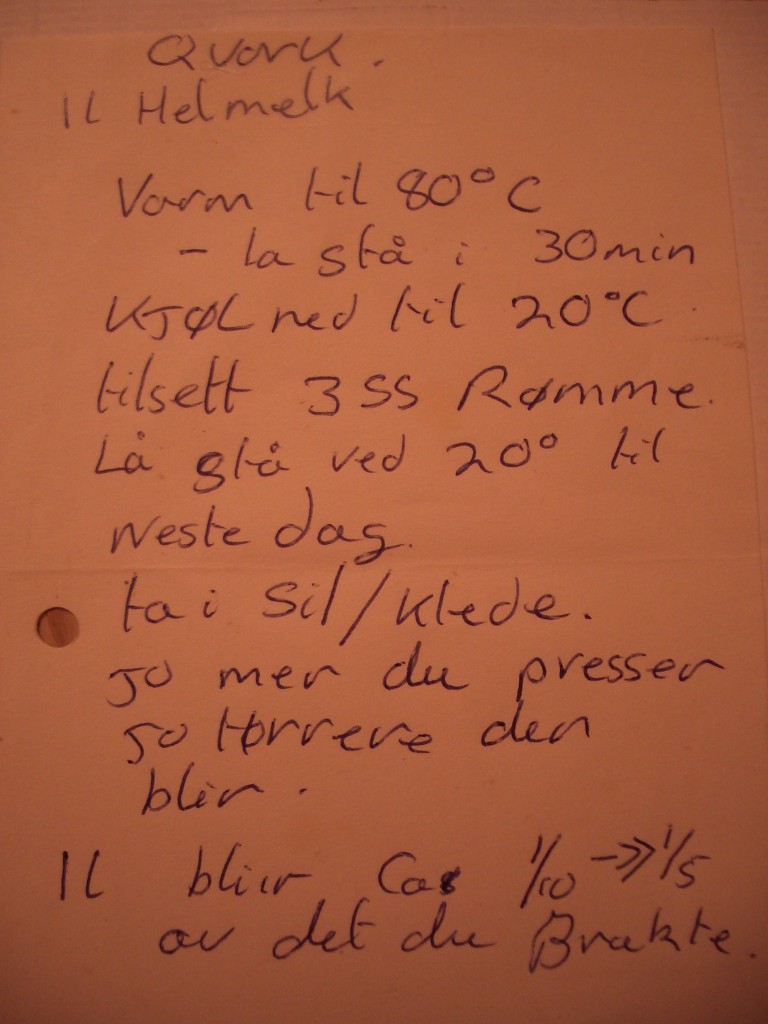 Qvark.
1L Helmælk
Varm til 80°C
- la stå i 30min
KJØL ned til 20°C
tilsett 3 SS Rømme.
Lå stå ved 20° til
Neste dag.
ta i Sil/klede.
jo mer du presser
jo tørrere den
blir.
1L blir Ca 1/10 ->> 1/5
av det du Brukte.